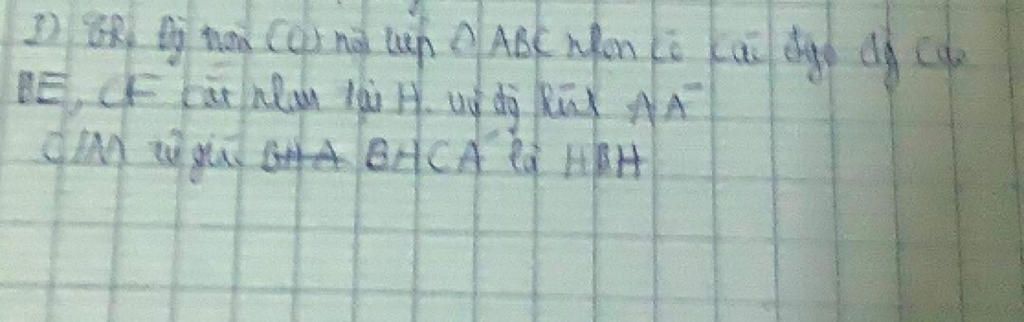 (O) nội tiếp △ ABC nhọn có các đg cao
BE, CF cắt nhau tại H. vẽ đg kính AA'
C/M tứ giác BHCA' là HBH